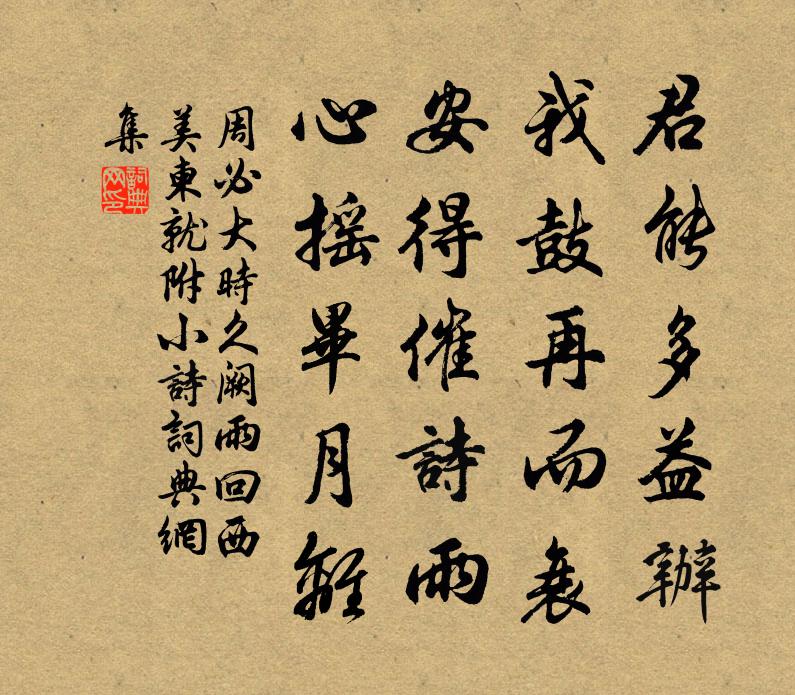 君能多益辦
我鼓再而衰
安得催詩雨
心摇畢月離
周必大時久阙雨回西
美東就附小詩詞典網
集
詞典网印